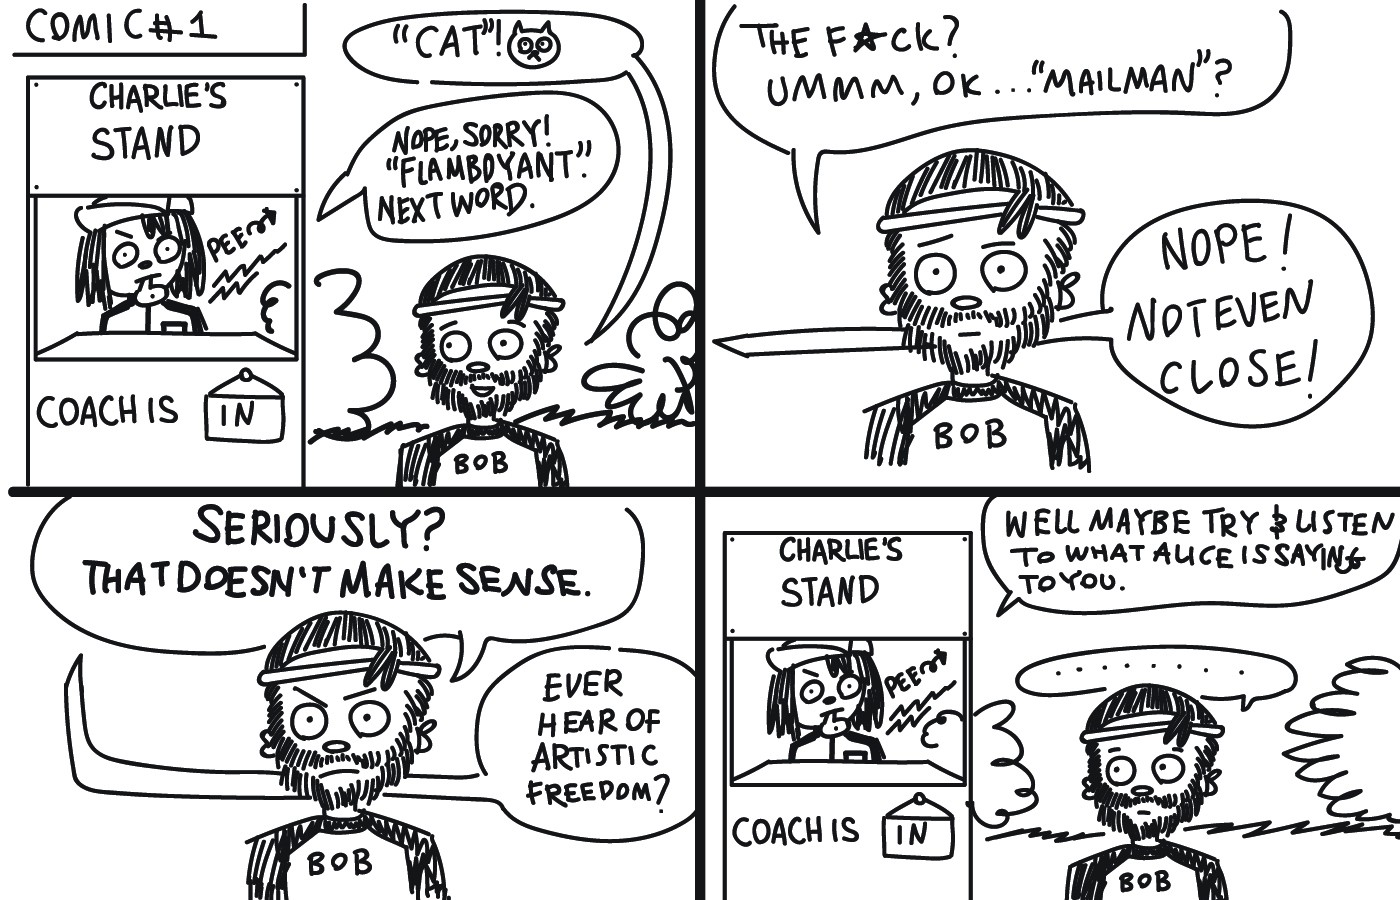 COMIC #1
CHARLIE'S
STAND
PEE
COACH IS
IN
"CAT"!
NOPE, SORRY!
"FLAMBOYANT".
NEXT WORD.
BOB
THE F☆CK?
UMMM, OK..."MAILMAN"?
NOPE!
NOT EVEN
CLOSE!
BOB
SERIOUSLY?
THAT DOESN'T MAKE SENSE.
EVER
HEAR OF
ARTISTIC
FREEDOM?
BOB
CHARLIE'S
STAND
PEE
COACH IS
IN
WELL MAYBE TRY & LISTEN
TO WHAT ALICE IS SAYING
TO YOU.
. . . . . . . .
BOB